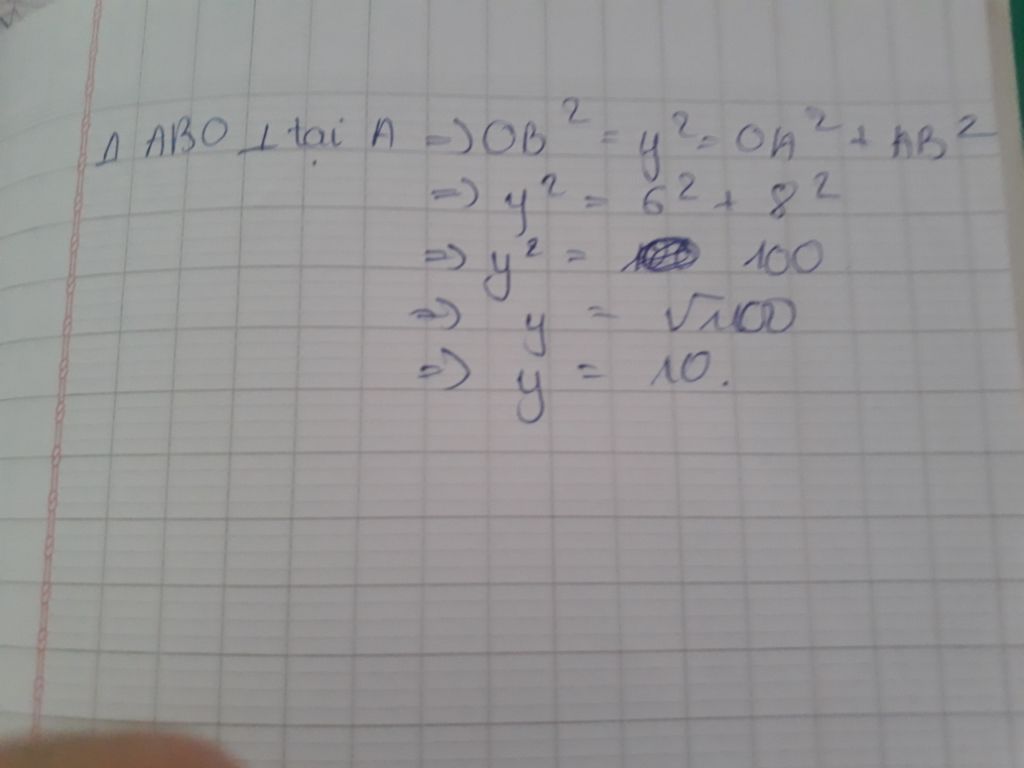 Δ ABO ⊥ tại A => OB² = y² = OA² + AB²
=> y² = 6² + 8²
=> y² = 100
=> y = √100
=> y = 10.